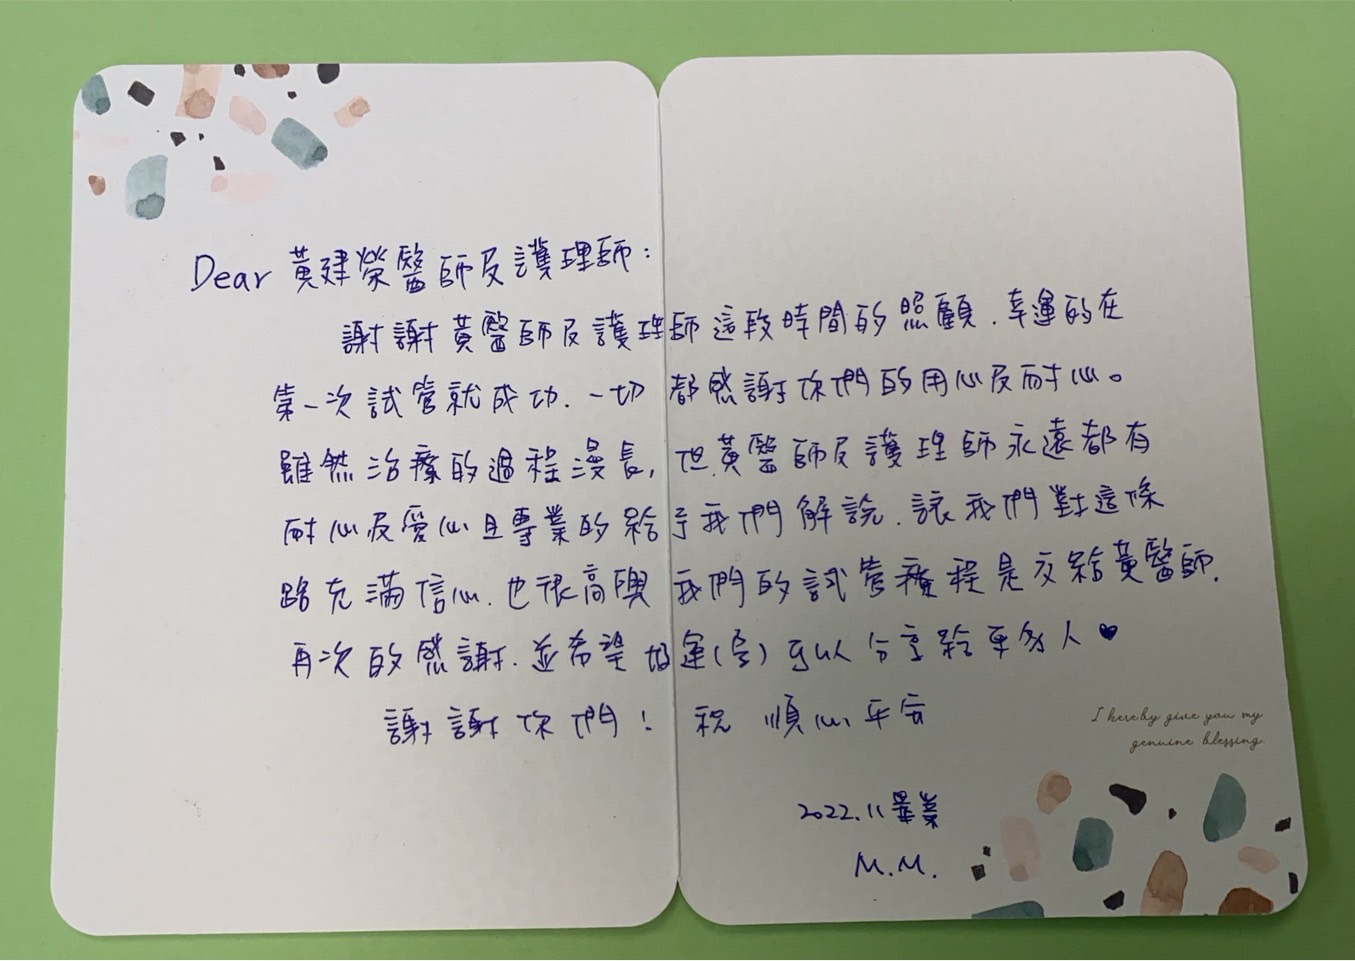 Dear 黃建榮醫師及護理師:
謝謝黃醫師及護理師這段時間的照顧.幸運的在
第一次試管就成功.一切都感謝你們的用心及耐心。
雖然治療的過程漫長,但黃醫師及護理師永遠都有
耐心及愛心且專業的給予我們解說.讓我們對這條
路充滿信心.也很高興我們的試管療程是交給黃醫師.
再次的感謝.並希望好運(孕)可以分享給更多人♥
謝謝你們! 祝 順心平安
I hereby give you my
genuine blessing.
2022.11畢業
M.M.